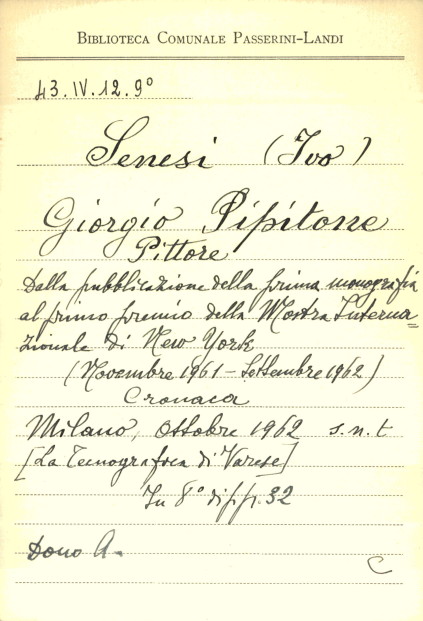 BIBLIOTECA COMUNALE PASSERINI-LANDI
43.IV.12.9°
Senesi (Ivo)
Giorgio Pipitone
Pittore
Dalla pubblicazione della prima monografia
al primo premio della Mostra Interna=
zionale di New York
(Novembre 1961 - Settembre 1962)
Cronaca
Milano, ottobre 1962 s.n.t
[La Tecnografica di Varese]
In 8° di pp. 32
Dono A.
C